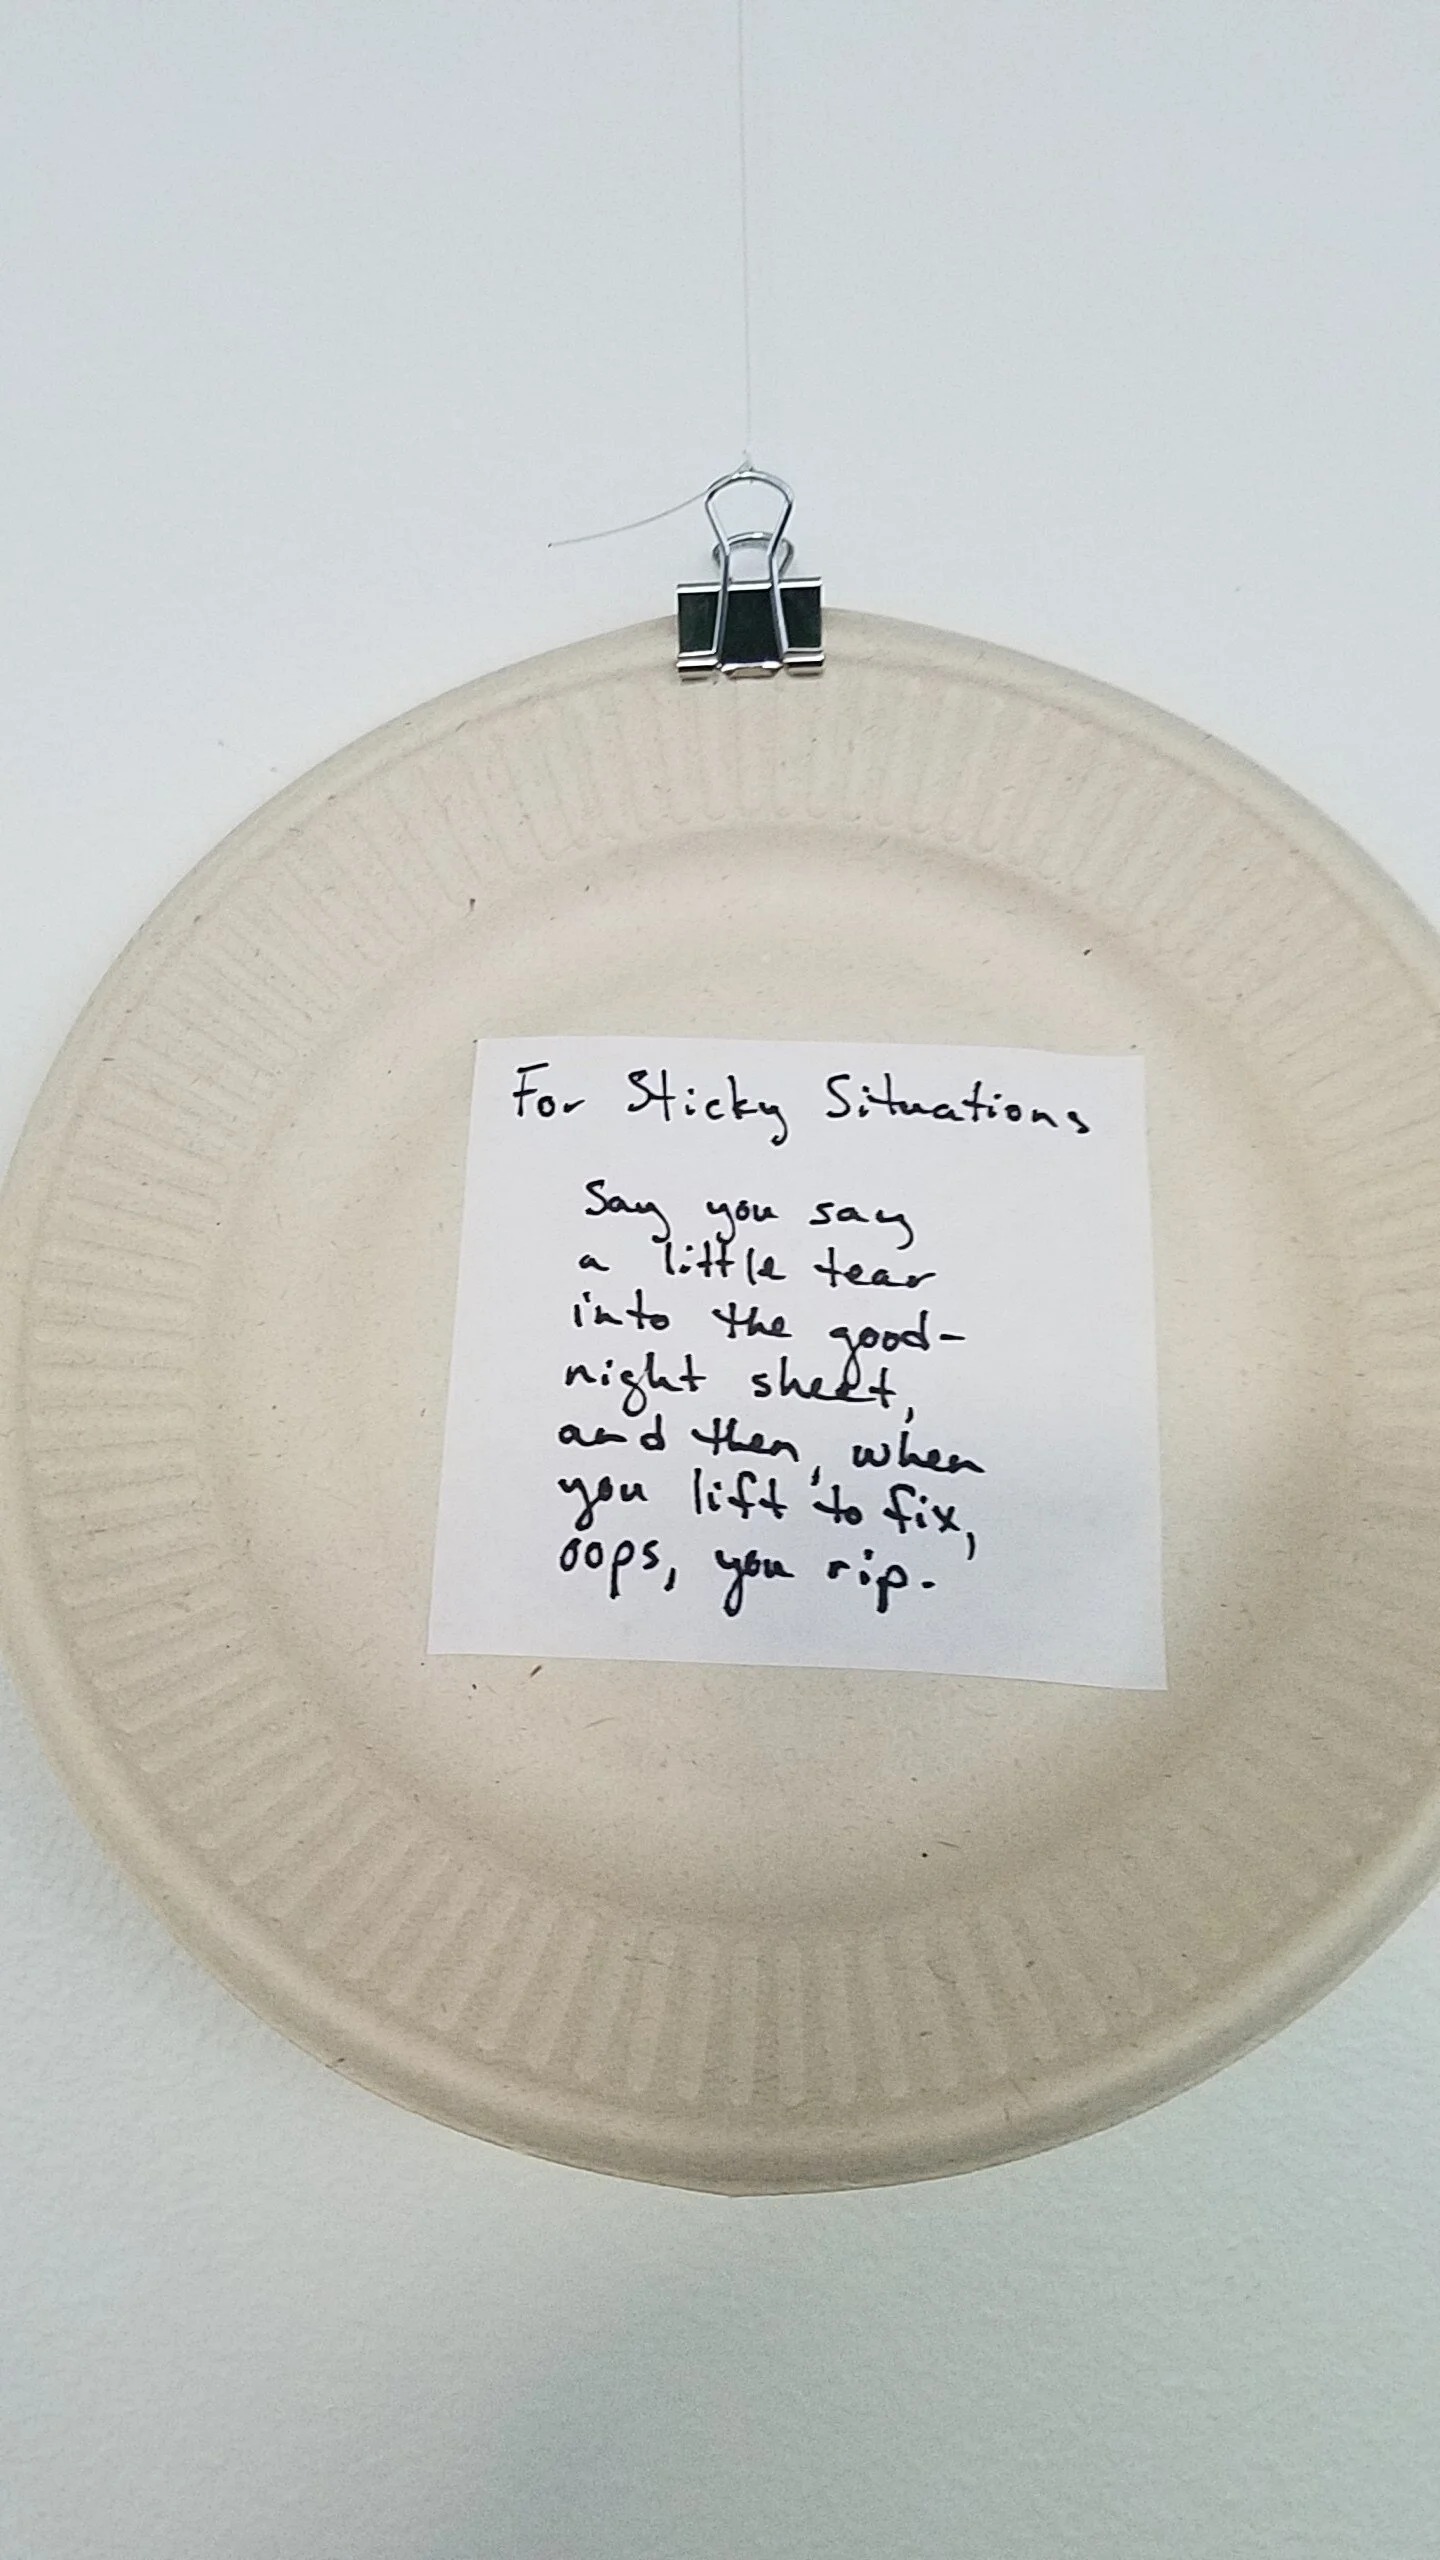 For Sticky Situations
Say you say
a little tear
into the good-
night sheet,
and then, when
you lift to fix,
oops, you rip.